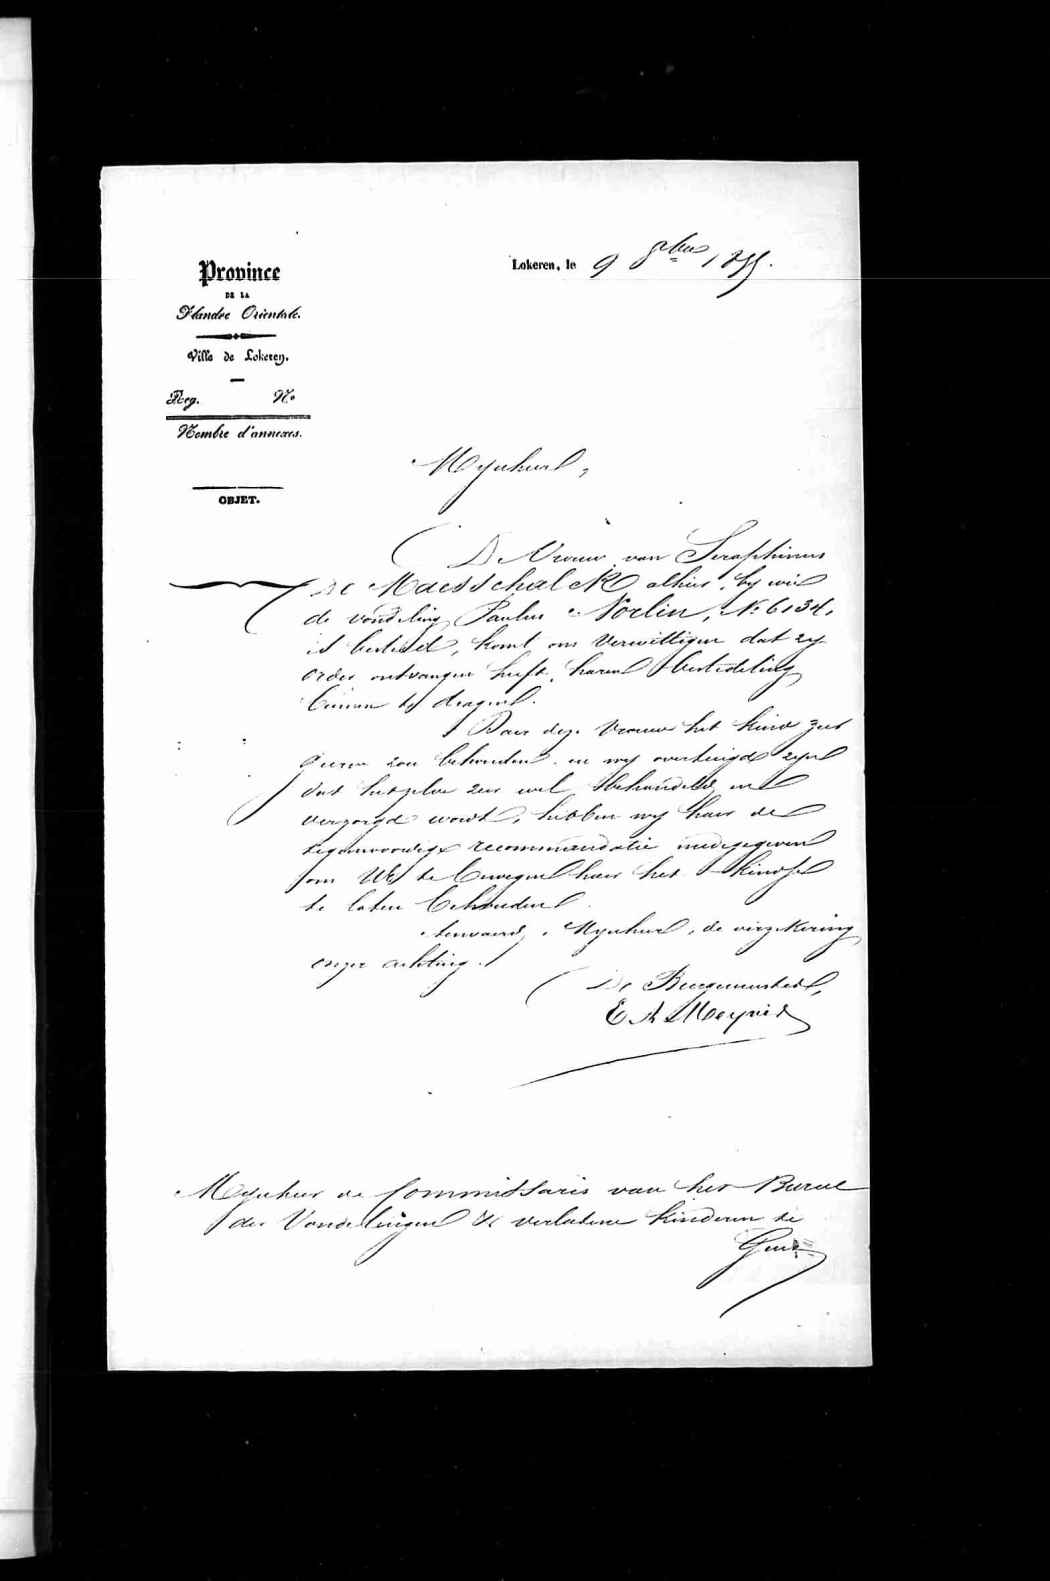 Province
DE LA
Flandre Orientale.
Ville de Lokeren.
Reg. No
Nombre d'annexes.
OBJET.
Lokeren, le 9 8bre 1855.
Mynheer,
De Vrouw van Seraphinus
De Maesschalck alhier, by wie
de vondeling Paulus Norlin, No 6134,
is besteed, komt ons verwittigen dat zy
order ontvangen heeft, haren bestedeling
binnen te dragen.
Daer deze vrouw het kind zeer
geerne zou behouden en wy overtuigd zyn
dat hetzelve zeer wel behandeld en
verzorgd wordt, hebben wy haer de
tegenwoordige recommandatie medegegeven
om UE te bewegen haer het kindje
te laten behouden.
Aenvaerd, Mynheer, de verzekering
onzer achting.
De Burgemeester,
Mynheer de Commissaris van het Bureel
der Vondelingen & verlatene kinderen te
Gend